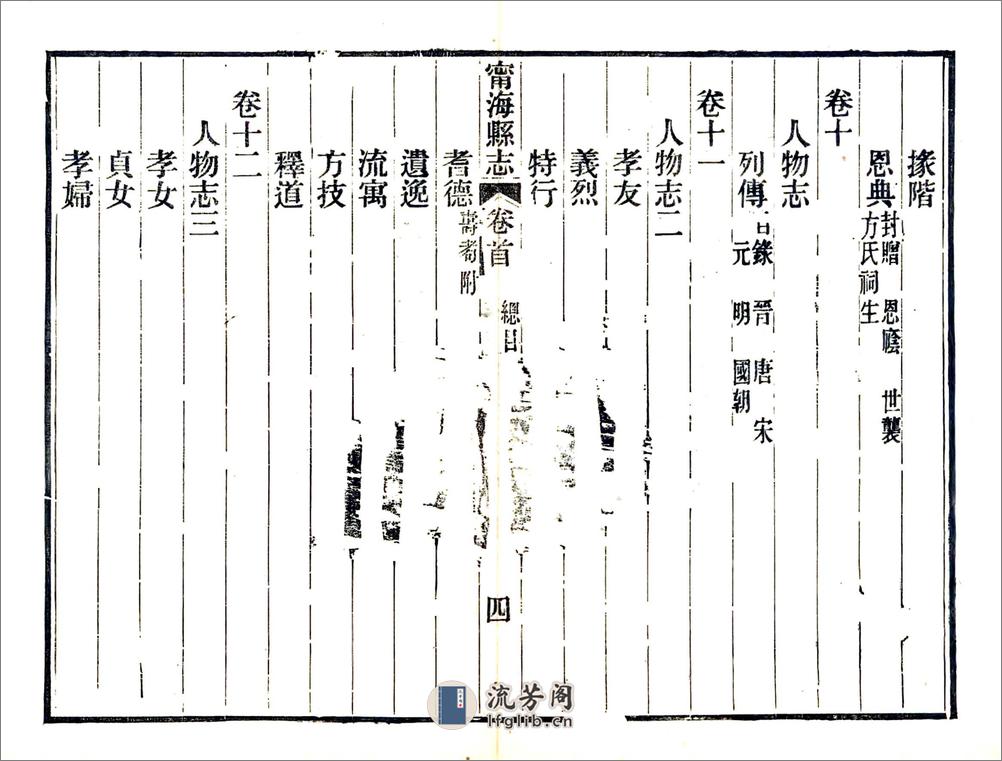 掾階
恩典 封贈 恩廕 世襲
方氏祠生
卷十
人物志
列傳 錄 晉 唐 宋
元 明 國朝
卷十一
人物志二
孝友
義烈
特行
甯海縣志 卷首 總目 四
耆德 壽耇附
遺逸
流寓
方技
釋道
卷十二
人物志三
孝女
貞女
孝婦
流芳阁
lfglib.cn